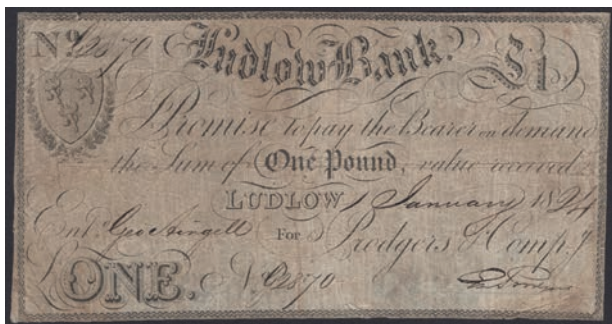 No. C2870 Ludlow Bank. £1
I Promise to pay the Bearer on demand
the Sum of One Pound, value received
LUDLOW 1 January 1824
Entd. Geo Angell For Prodgers & Compy.
ONE. No. C2870